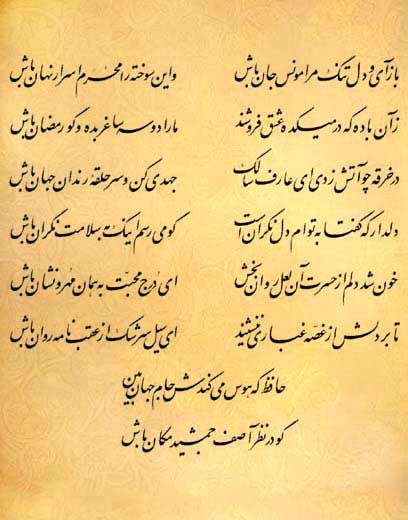 بازآی و دل تنگ مرا مونس جان باش واین سوخته را محرم اسرار نهان باش
زان باده که در میکده عشق فروشند ما را دو سه ساغر بده و گو رمضان باش
در خرقه چو آتش زدی ای عارف سالک جهدی کن و سر حلقه رندان جهان باش
دلدار که گفتا به توام دل نگران است گو می رسم اینک به سلامت نگران باش
خون شد دلم از حسرت آن لعل روان بخش ای درج محبت به همان مهر و نشان باش
تا بر دلش از غصه غباری ننشیند ای سیل سرشک از عقب نامه روان باش
حافظ که هوس می کندش جام جهان بین
گو در نظر آصف جمشید مکان باش